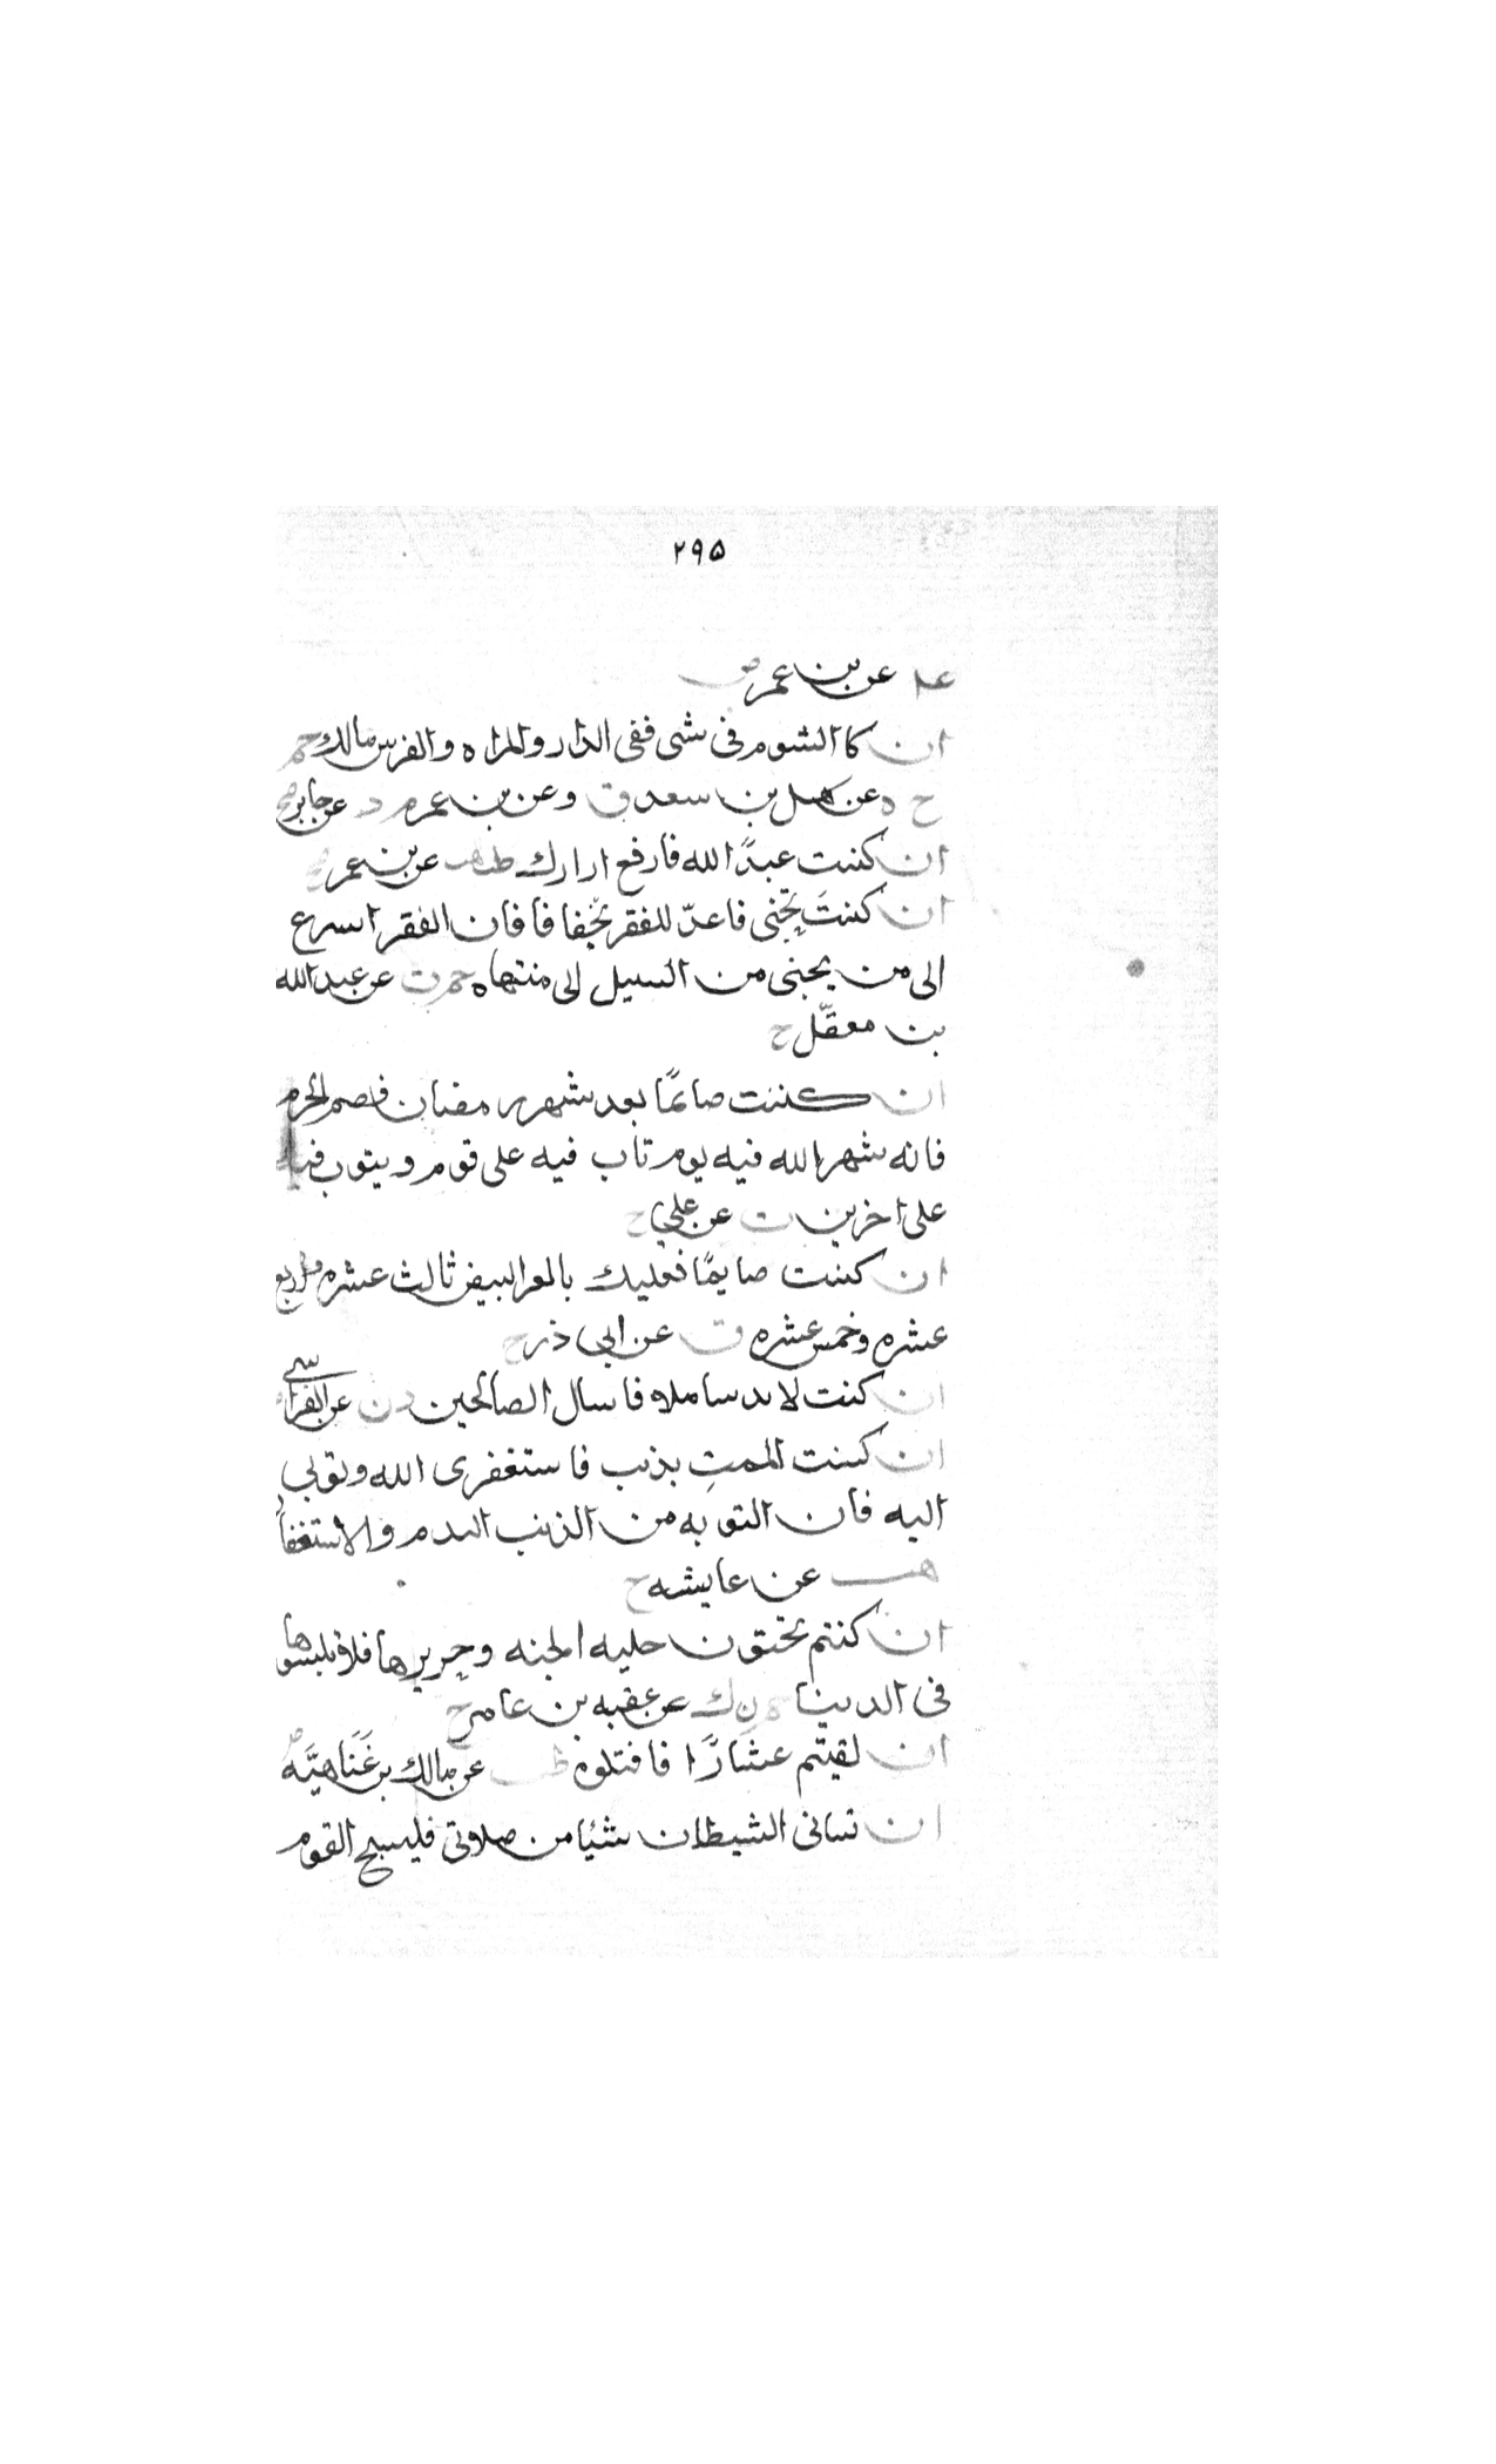 ٢٩٥
عد عن بن عمر ض
ان كا الشوم فى شى ففى الدار والمراه والفرس مالك حم
خ ه عن سهل بن سعد ق وعن بن عمر م د عن جابر صح
ان كنت عبدًا الله فارفع ازارك طب هب عن بن عمر
ان كنتَ تحِبّنى فاعدّ للفقر تجفافا فان الفقر اسرع
الى من يحبنى من السيل الى منتهاه حم ت عن عبد الله
بن معقّل ح
ان كنت صائمًا بعد شهر رمضان فصم المحرم
فانه شهر الله فيه يوم تاب فيه على قوم ويتوب فيه
على اخرين ت عن علي ح
ان كنت صايمًا فعليك بالغر البيض ثالث عشره واربع
عشره وخمس عشره ن عن ابى ذر ح
ان كنت لابد سايلا فاسال الصالحين د ن عن الفراسي
ان كنت الممتِ بذنب فاستغفرى الله وتوبي
اليه فان التوبه من الذنب الندم والاستغفار
هب عن عايشه ح
ان كنتم تحبون حليه الجنه وحريرها فلا تلبسوها
فى الدنيا حم ن ك عن عقبه بن عامر ح
ان لقيتم عشّارًا فاقتلوه طب عن مالك بن عَتَاهيَّه ض
ان نسانى الشيطان شيًا من صلاتى فليسبح القوم